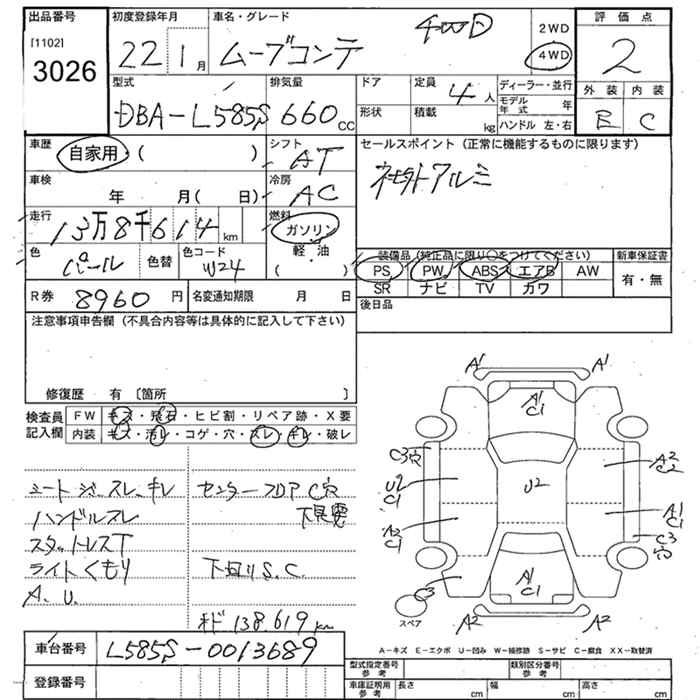 出品番号 初度登録年月 車名・グレード 評価点
[1102]
3026
22 1月 ムーブコンテ 4WD
2WD
4WD
2
型式 排気量 ドア 定員 ディーラー・並行 外装 内装
DBA-L585S 660cc 4人 モデル年式 年
形状 積載 kg ハンドル 左・右
E C
車歴 シフト セールスポイント (正常に機能するものに限ります)
自家用 ( ) AT
車検 冷房
年 月( 日) AC
走行 燃料
13万8千614km ガソリン
軽・油
( )
色 色替 色コード
パール W24
装備品 (純正品に限り○をつけてください) 新車保証書
PS PW ABS エアB AW 有・無
SR ナビ TV カワ
R券 8960円 名変通知期限 月 日 後日品
注意事項申告欄 (不具合内容等は具体的に記入して下さい)
修復歴 有 〔箇所 〕
検査員記入欄 FW キズ・飛石・ヒビ割・リペア跡・X要
内装 キズ・汚レ・コゲ・穴・スレ・キレ・破レ
シートジャスレ、キレ センターフロア C穴
ハンドルスレ
スタットレスT
ライトくもり 下廻りS.C.
A.U.
メド 138,619km
A1 A1
A1
C1
C3穴 A2
C2
U2
C1
U2
A2
C1
A1
C1
C3
穴
C3 A1
C1
スペア A2 A2
A-キズ E-エクボ U-凹み W-補修跡 S-サビ C-腐食 XX-取替済
車台番号 L585S-0013689
登録番号
型式指定番号 参考 類別区分番号 参考
車庫証明用 参考 長さ cm 幅 cm 高さ cm